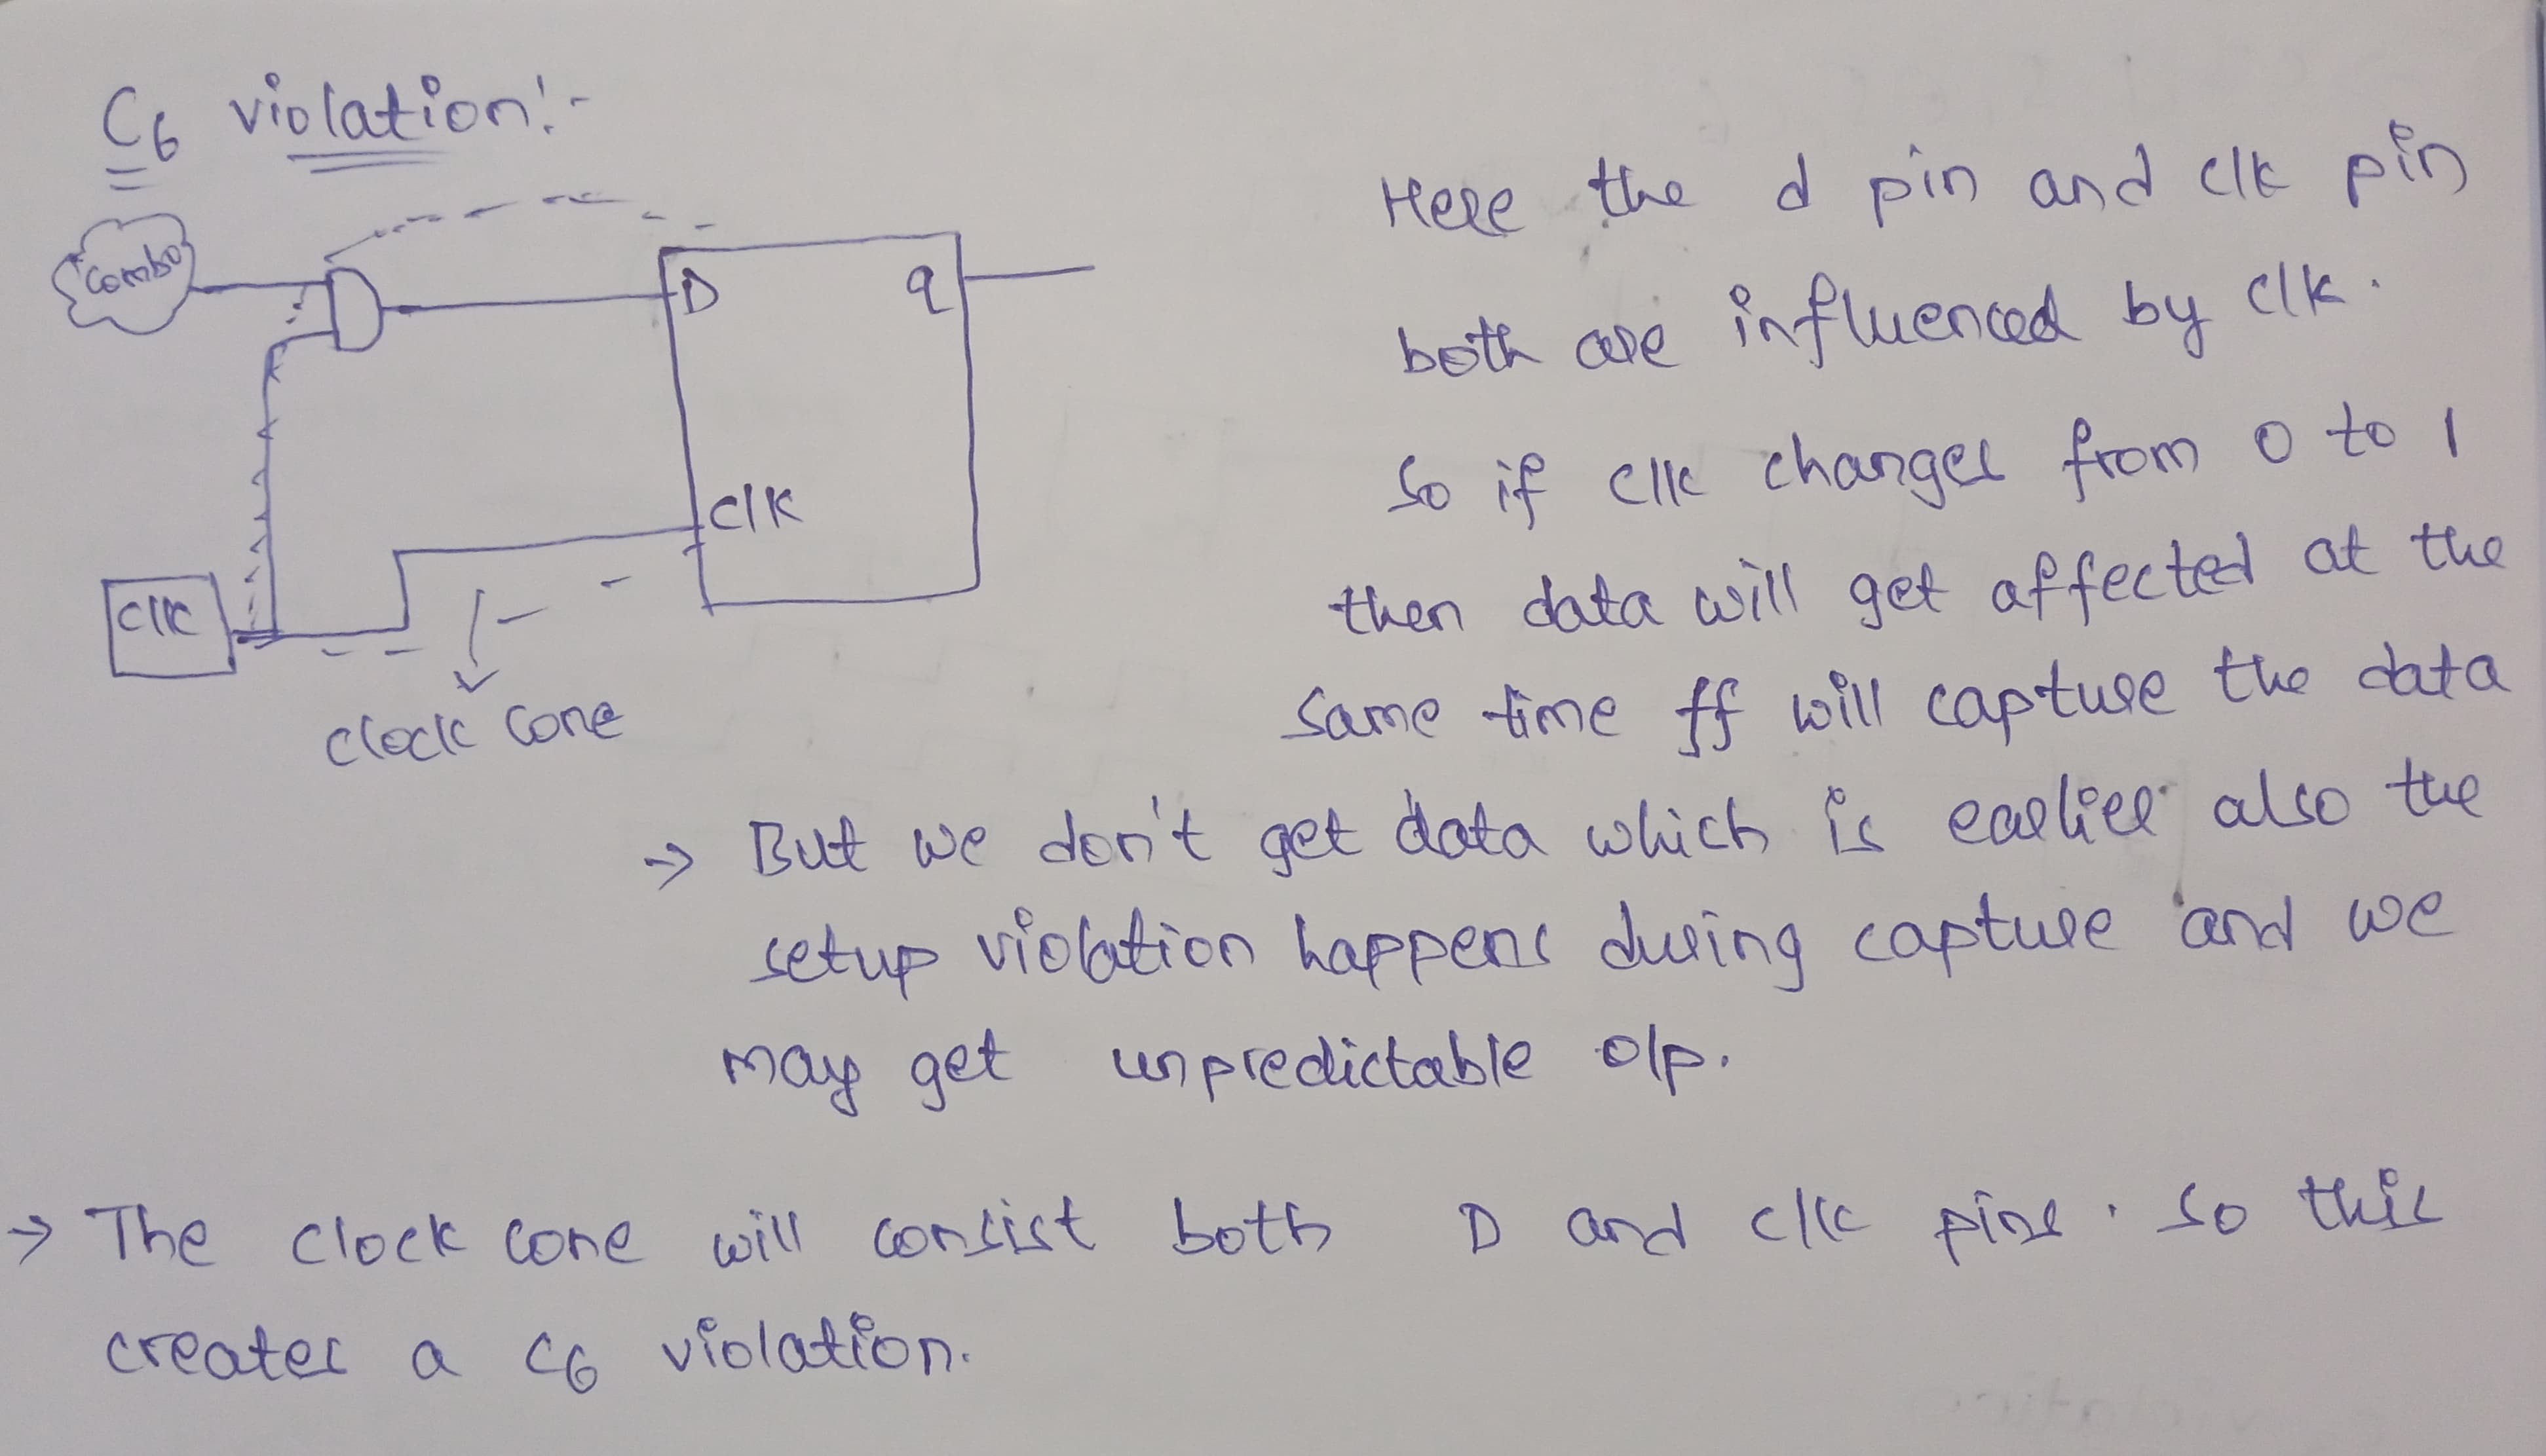 C6 violation:-
Combo
D
q
clk
clk
clock cone
Here the d pin and clk pin
both are influenced by clk.
so if clk changes from 0 to 1
then data will get affected at the
same time ff will capture the data
-> But we don't get data which is earlier also the
setup violation happens during capture and we
may get unpredictable o/p.
-> The clock cone will consist both D and clk pins. so this
creates a C6 violation.